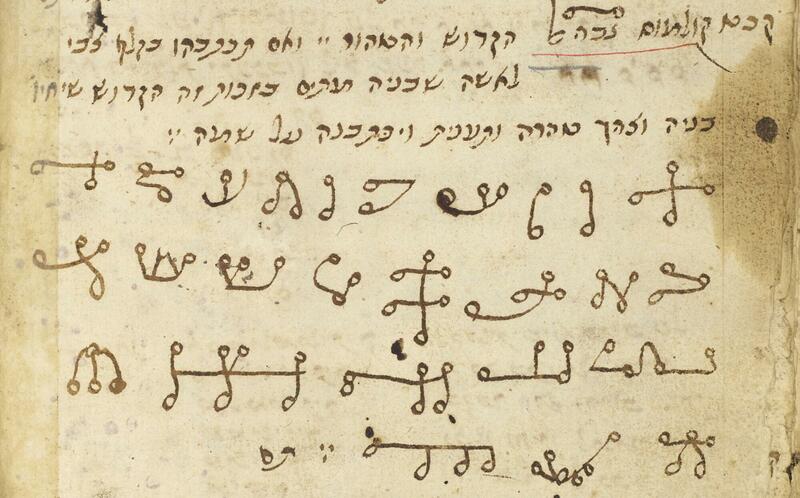 קכא קולמוס הקדוש והטהור ״ ואם תכתבהו בקלף צבי
לאשה שבניה מתים בזכות זה הקדוש שיחיו
בניה וצריך טהרה ותענית ויכתבנה על שמה ״
״ תם